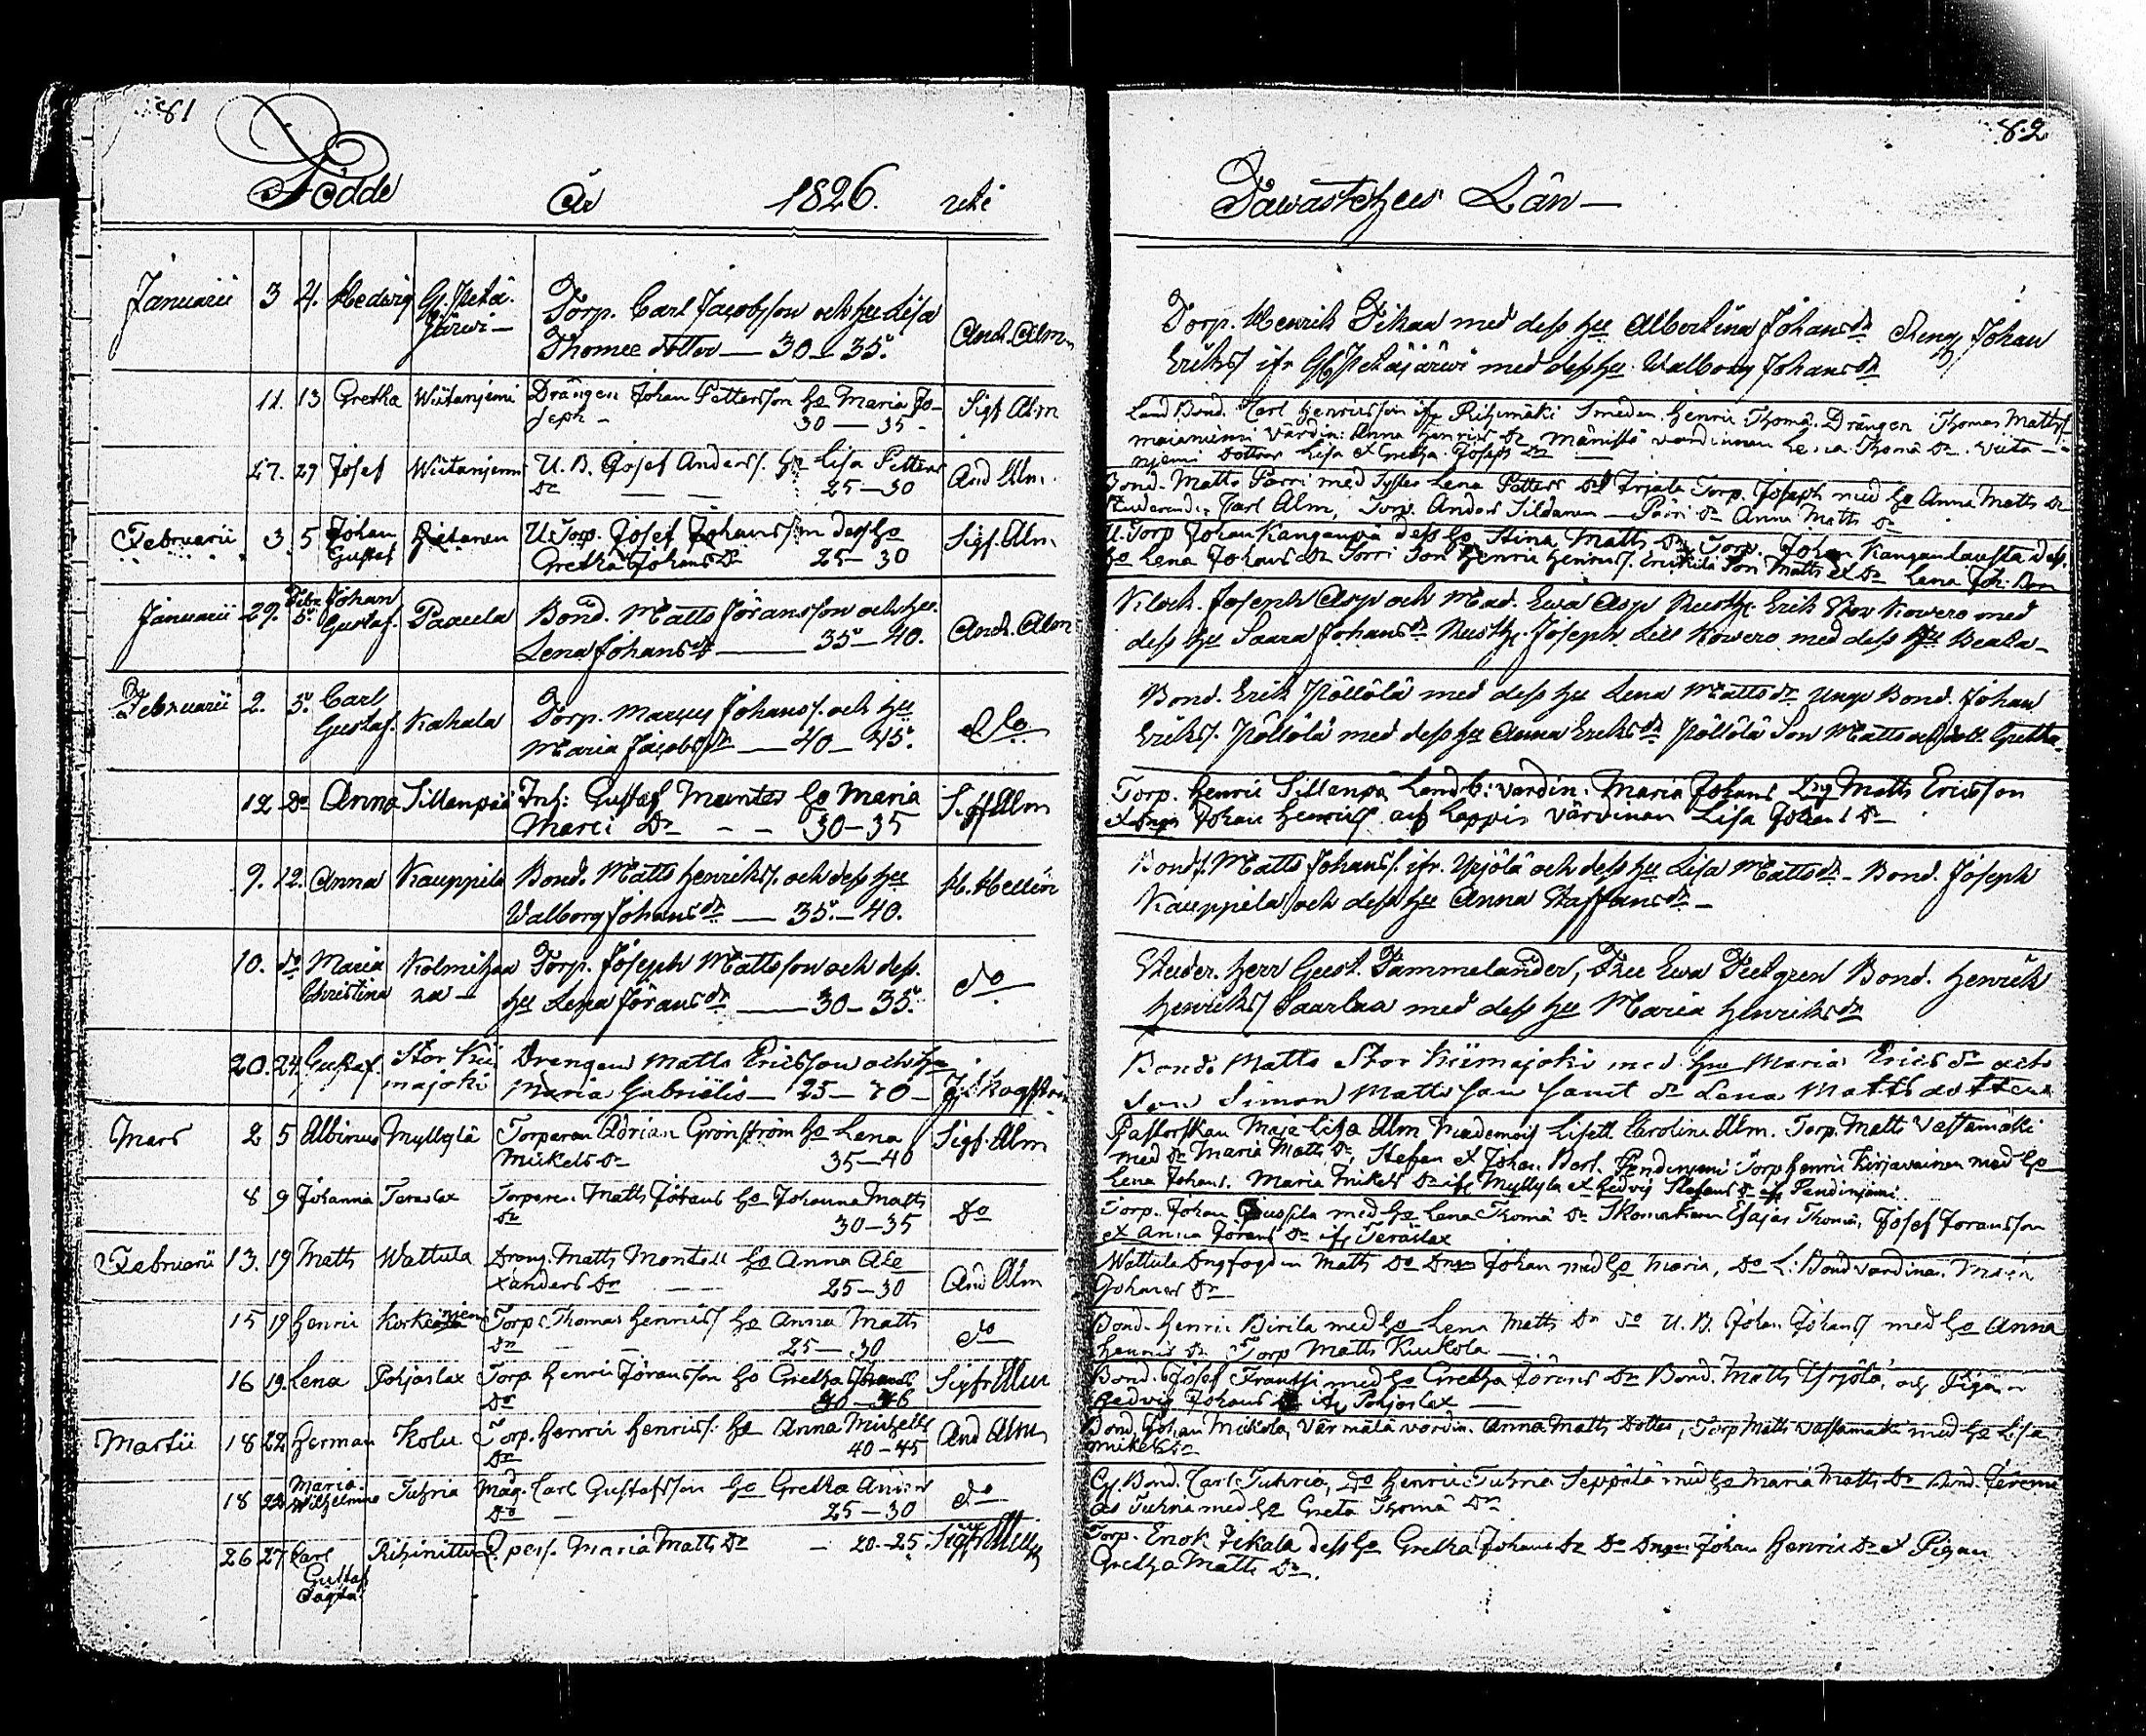 81
Födde År 1826. uti
Januarii 3 4. Hedwig G. Petä-
järwi — Torp. Carl Jacobsson och hu Lisa
Thomæ dotter — 30 – 35. And. Alm
11. 13 Gretha Wiitanjemi Drängen Johan Pettersson Ho Maria Jo-
seph – 30 — 35 – Sigf Alm
27. 29 Josef Wiitanjemi U. B. Josef Anders. Ho Lisa Petters
Dr — — 25 — 30 And Alm.
Februarii 3 5 Johan
Gustaf U. Torp. Josef Johansson dess Ho
Gretha Johans Dr 25 – 30 Sigf. Alm.
Januarii 29. Febr.
5. Johan
Gustaf. Paavela Bond. Matts Jöransson och hu.
Lena Johansdr — 35 – 40. And. Alm
Februarii 2. 5. Carl
Gustaf. Kahala Torp. Marcus Johanss. och hu
Maria Jacobsdr — 40 – 45. do
12 Do Anna Sillanpää Inh: Gustaf Munter Ho Maria
Marci Dr – – 30 – 35 Sigf Alm
9. 12. Anna Kauppila Bond. Matts Henrikss. och dess hu
Walborg Johansdr — 35. – 40. H. Hellén
10. do Maria
Christina Kolmihaa
ra – Torp. Joseph Mattsson och dess.
hu Lena Jöransdr — 30 – 35. do
20. 24. Gustaf. Stor Kii
majoki Drengen Matts Ericsson och hu
Maria Gabrielis – 25 – 70 –
Mars 2 5 Albinus Myllylä Torparen Adrian Grönström Ho Lena
Mickels Dr 35 – 40 Sigf. Alm
8 9 Johanna Teraslax Torparen Matts Jörans Ho Johanna Matts
Dr 30 – 35 Do
Februarii 13. 19 Matts Wattula Dräng. Matts Montell Ho Anna Ale
xanders Dr — 25 – 30 And Alm
15 19 Henric Torp. Thomas Henrics Ho Anna Matts
Dr — 25 — 30 do
16 19. Lena Pohjaslax Torp Henric Jöransson Ho Gretha
Do Sigfr Alm
Martii 18 22 Herman Kolu Torp. Henric Henrics. Ho Anna Michells
Dr 40 – 45 And Alm
18 22 Maria
Wilhelmina Tuhria Måg. Carl Gustafsson Ho Gretha
Do — 25 – 30 do
26 27 Carl
Gustaf Q pers. Maria Matts Dr – 20 – 25. Sigfr Alm
82
Tawastehus Län —
Torp. Henrik Pihan med dess hu Albertina Johansdr Dreng Johan
Eriks ifr G. Petäjärwi med dess hu. Walborg Johansdr
Land Bond. Karl Henricsson ifr Riihimäki Smeden. Henric Thomæ. Drängen Thomas Matts
värdin: Anna Henrics Dr Mänistö värdinnan Lena Thomæ Dr. Viita –
njemi Dottrar Lisa et Gretha Josephs Dr —
Bond. Matts Parri med Syster Lena Petters Dr Torp. Joseph med Ho Anna Matts Dr
Studerande Karl Alm, Torp. Anders — Parri Dr Anna Matts Dr
U. Torp Johan dess Ho Stina Matts Dr Torp. Johan dess.
Ho Lena Johans Dr Sorri Son Henric Henrics. Son Matts et Dr Lena Joh. Dr
Klock. Joseph Asp och Mad. Ewa Asp Rusth. Erik Stor Kowero med
dess hu Saara Johansdr Rusth. Joseph Lill Kowero med dess hu Beata –
Bond. Erik Pöllölä med dess hu Lena Mattsdr Unge Bond. Johan
Erikss. Pöllölä med dess hu Anna Eriksdr Pöllölä Son Matts och dott. Gretha
Torp. Henric Sillanpä Landb: vardin. Maria Johans Drg Matts Ericsson
et Johan Henrics af Loppis Värdinan Lisa Johans Dr
Bonds. Matts Johanss. ifr. Yrjölä och dess hu Lisa Mattsdr – Bond. Joseph
Kauppila och dess hu Anna Staffansdr –
Studer. Herr Gust. Tammelander, Fru Ewa Bond. Henrik
Henriks Saarlaa med dess hu Maria Henriksdr
Bond. Matts Stor Kiimajoki med hu Maria Erics dr och
Son Simon Mattsson samt dr Lena Matts dotter
Pastorskan Maja Lisa Alm Mademois Lisett Carolina Alm. Torp. Matts Vastamäki
med Dr Maria Matts Dr, Stefan et Johan Torp Henric Kirjavainen med Ho
Lena Johans. Maria Mikels Dr ifr Myllyla et Hedvig Stefans Dr ifr Pendinjami.
Torp. Johan med Ho Lena Thomæ Dr Esajas Thomæ, Josef Jöransson
et Anna Jörans Dr ifr Teräslax
Wattula Matts Do Johan med Ho Maria, Do L: Bond vardinan Maria
Johans Dr –
Bond. Henric Birila med Ho Lena Matts Dr do U. B. Johan Johans med Ho Anna
Henrics Dr Torp Matts Kukola —
Bond. Josef Frantsi med Ho Gretha Jörans Dr Bond. Matts Yrjölä, och Pigan
Hedvig Johans ifr Pohjaslax
Bond Johan Mickola, värdin. Anna Matts Dotter, Torp Matts Vastamäki med Ho Lisa
Mikels Dr
Bond. Carl Tuhria, Do Henric Tuhria Seppälä med Ho Maria Matts Dr
Tuhria med Ho Greta Thomæ Dr
Torp. Enok dess Ho Gretha Johans Dr Do Johan Henric Dr et Pigan
Gretha Matts Dr.